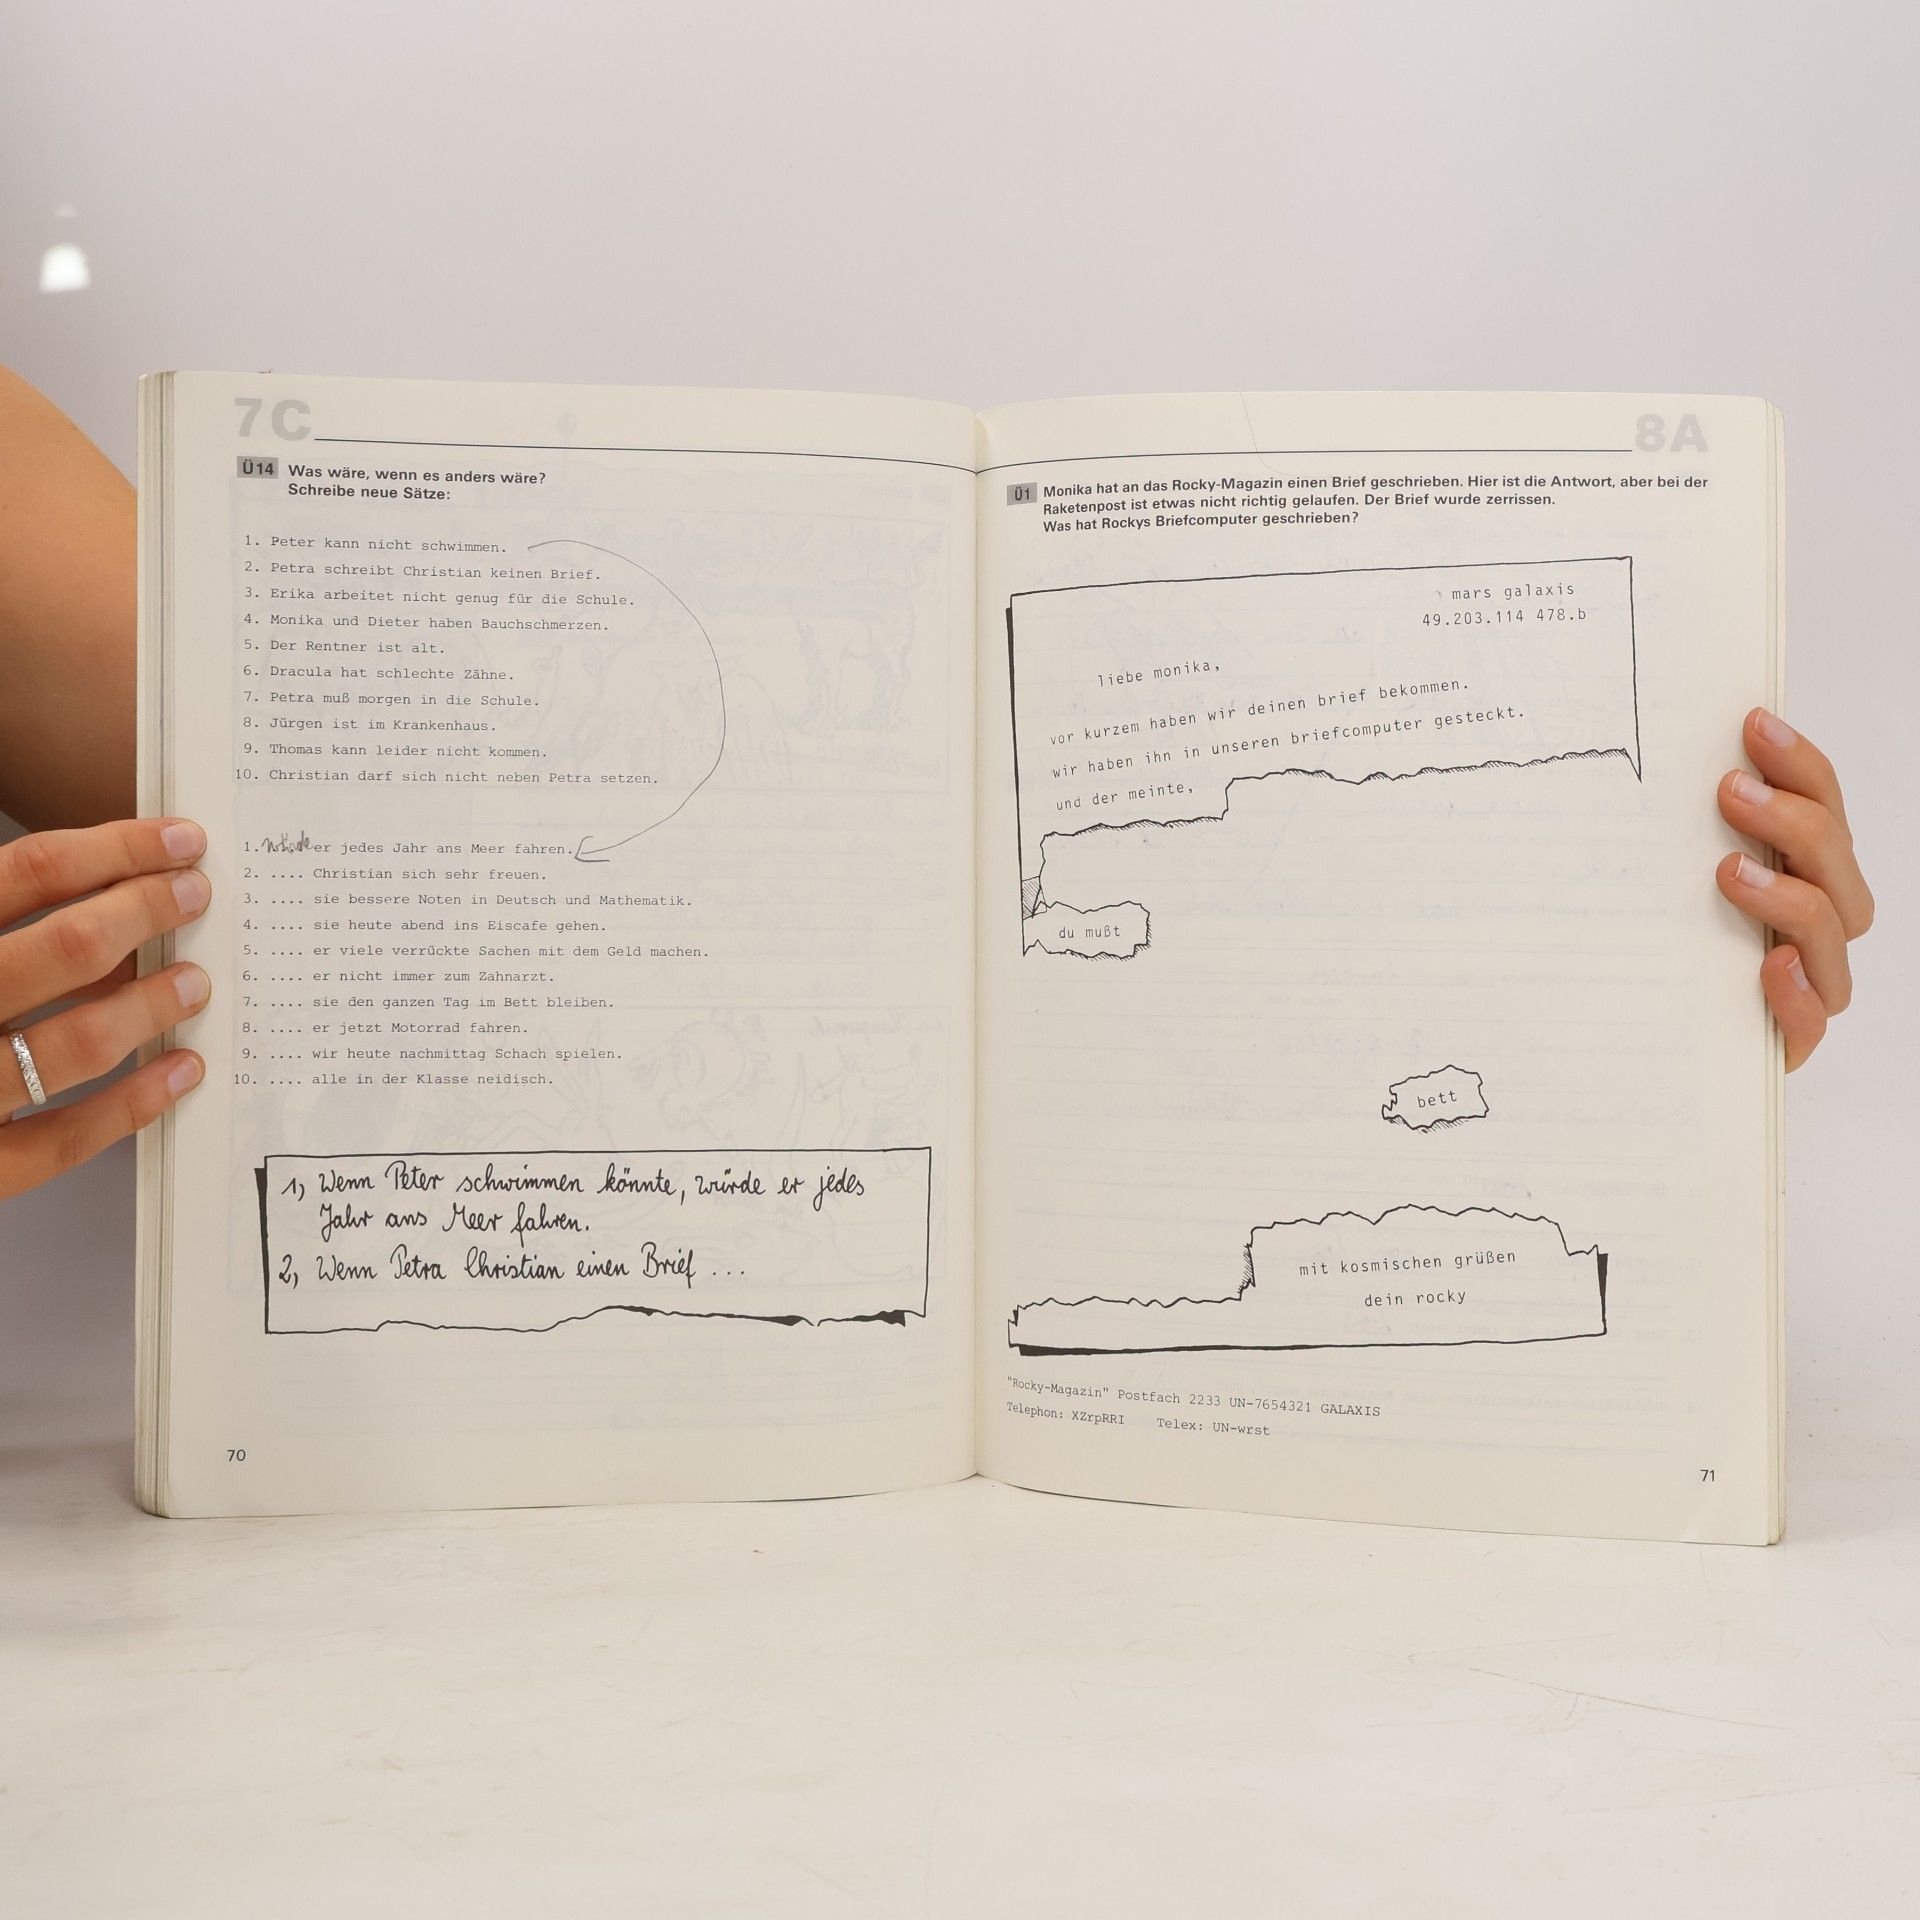 7C
Ü14 Was wäre, wenn es anders wäre?
Schreibe neue Sätze:
1. Peter kann nicht schwimmen.
2. Petra schreibt Christian keinen Brief.
3. Erika arbeitet nicht genug für die Schule.
4. Monika und Dieter haben Bauchschmerzen.
5. Der Rentner ist alt.
6. Dracula hat schlechte Zähne.
7. Petra muß morgen in die Schule.
8. Jürgen ist im Krankenhaus.
9. Thomas kann leider nicht kommen.
10. Christian darf sich nicht neben Petra setzen.
1. würde er jedes Jahr ans Meer fahren.
2. .... Christian sich sehr freuen.
3. .... sie bessere Noten in Deutsch und Mathematik.
4. .... sie heute abend ins Eiscafe gehen.
5. .... er viele verrückte Sachen mit dem Geld machen.
6. .... er nicht immer zum Zahnarzt.
7. .... sie den ganzen Tag im Bett bleiben.
8. .... er jetzt Motorrad fahren.
9. .... wir heute nachmittag Schach spielen.
10. .... alle in der Klasse neidisch.
1, Wenn Peter schwimmen könnte, würde er jedes
Jahr ans Meer fahren.
2, Wenn Petra Christian einen Brief ...
70
8A
Ü1 Monika hat an das Rocky-Magazin einen Brief geschrieben. Hier ist die Antwort, aber bei der
Raketenpost ist etwas nicht richtig gelaufen. Der Brief wurde zerrissen.
Was hat Rockys Briefcomputer geschrieben?
mars galaxis
49.203.114 478.b
liebe monika,
vor kurzem haben wir deinen brief bekommen.
wir haben ihn in unseren briefcomputer gesteckt.
und der meinte,
du mußt
bett
mit kosmischen grüßen
dein rocky
"Rocky-Magazin" Postfach 2233 UN-7654321 GALAXIS
Telephon: XZrpRRI Telex: UN-wrst
71